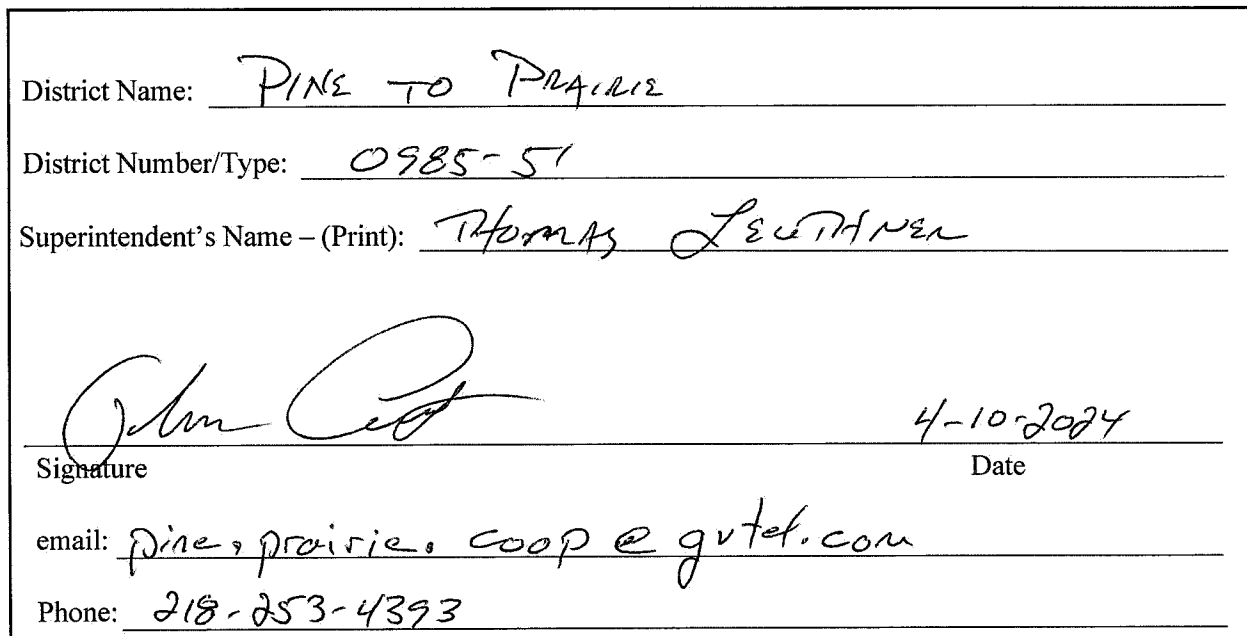 District Name: PINE TO PRAIRIE
District Number/Type: 0985-51
Superintendent's Name – (Print): THOMAS LEUTHNER
4-10-2024
Signature Date
email: pine.prairie.coop@gvtel.com
Phone: 218-253-4393